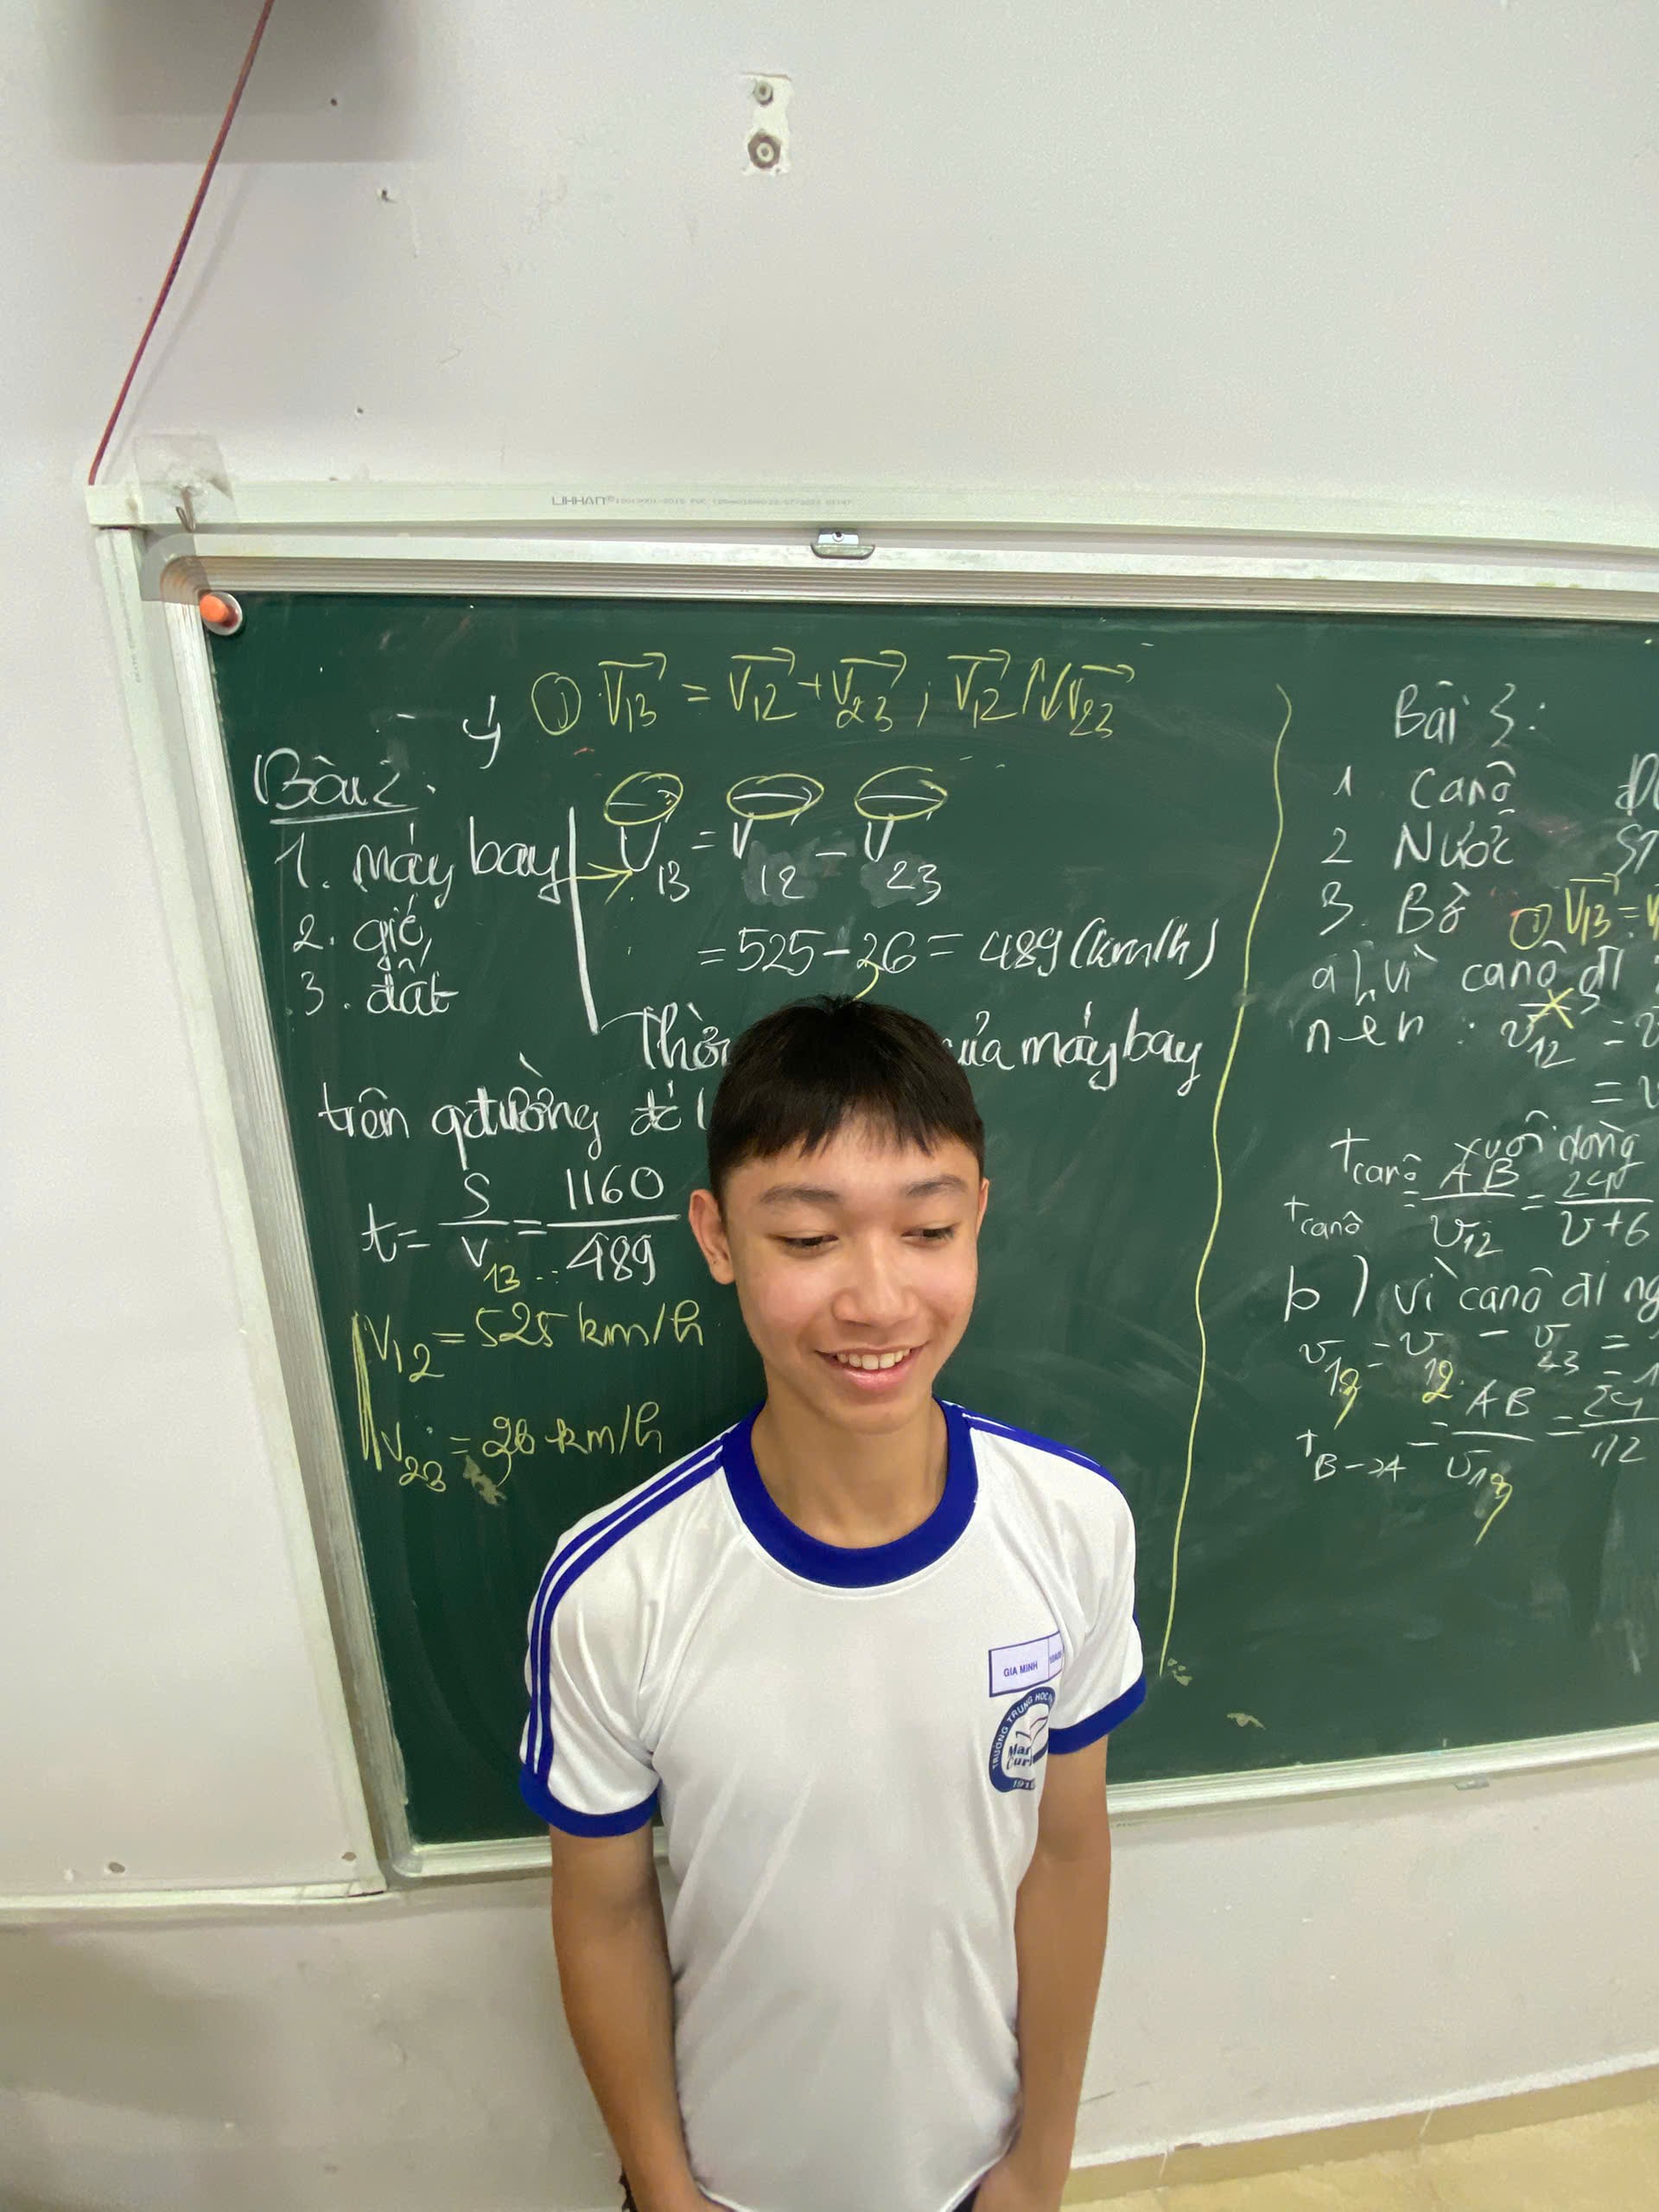 LIHHAN®
① V13 = V12 + V23 ; V12 ↑↓ V23
ý
Bài 2:
1. máy bay
2. gió
3. đất
V13 = V12 - V23
= 525 - 36 = 489 (km/h)
Thời của máy bay
trên qđường để
t = S/V13 = 1160/489
V12 = 525 km/h
V23 = 36 km/h
Bài 3:
1 Canô
2 Nước
3. Bờ ① V13 =
a) vì canô đi
nên : v12 =
=
xuôi dòng
tcanô
tcanô = AB/v12 = 24/v+6
b) vì canô đi
v13 = v12 - v23 =
tB→A = AB/v13 = 24/12
GIA MINH
TRƯỜNG TRUNG HỌC
Mar
Curi
191